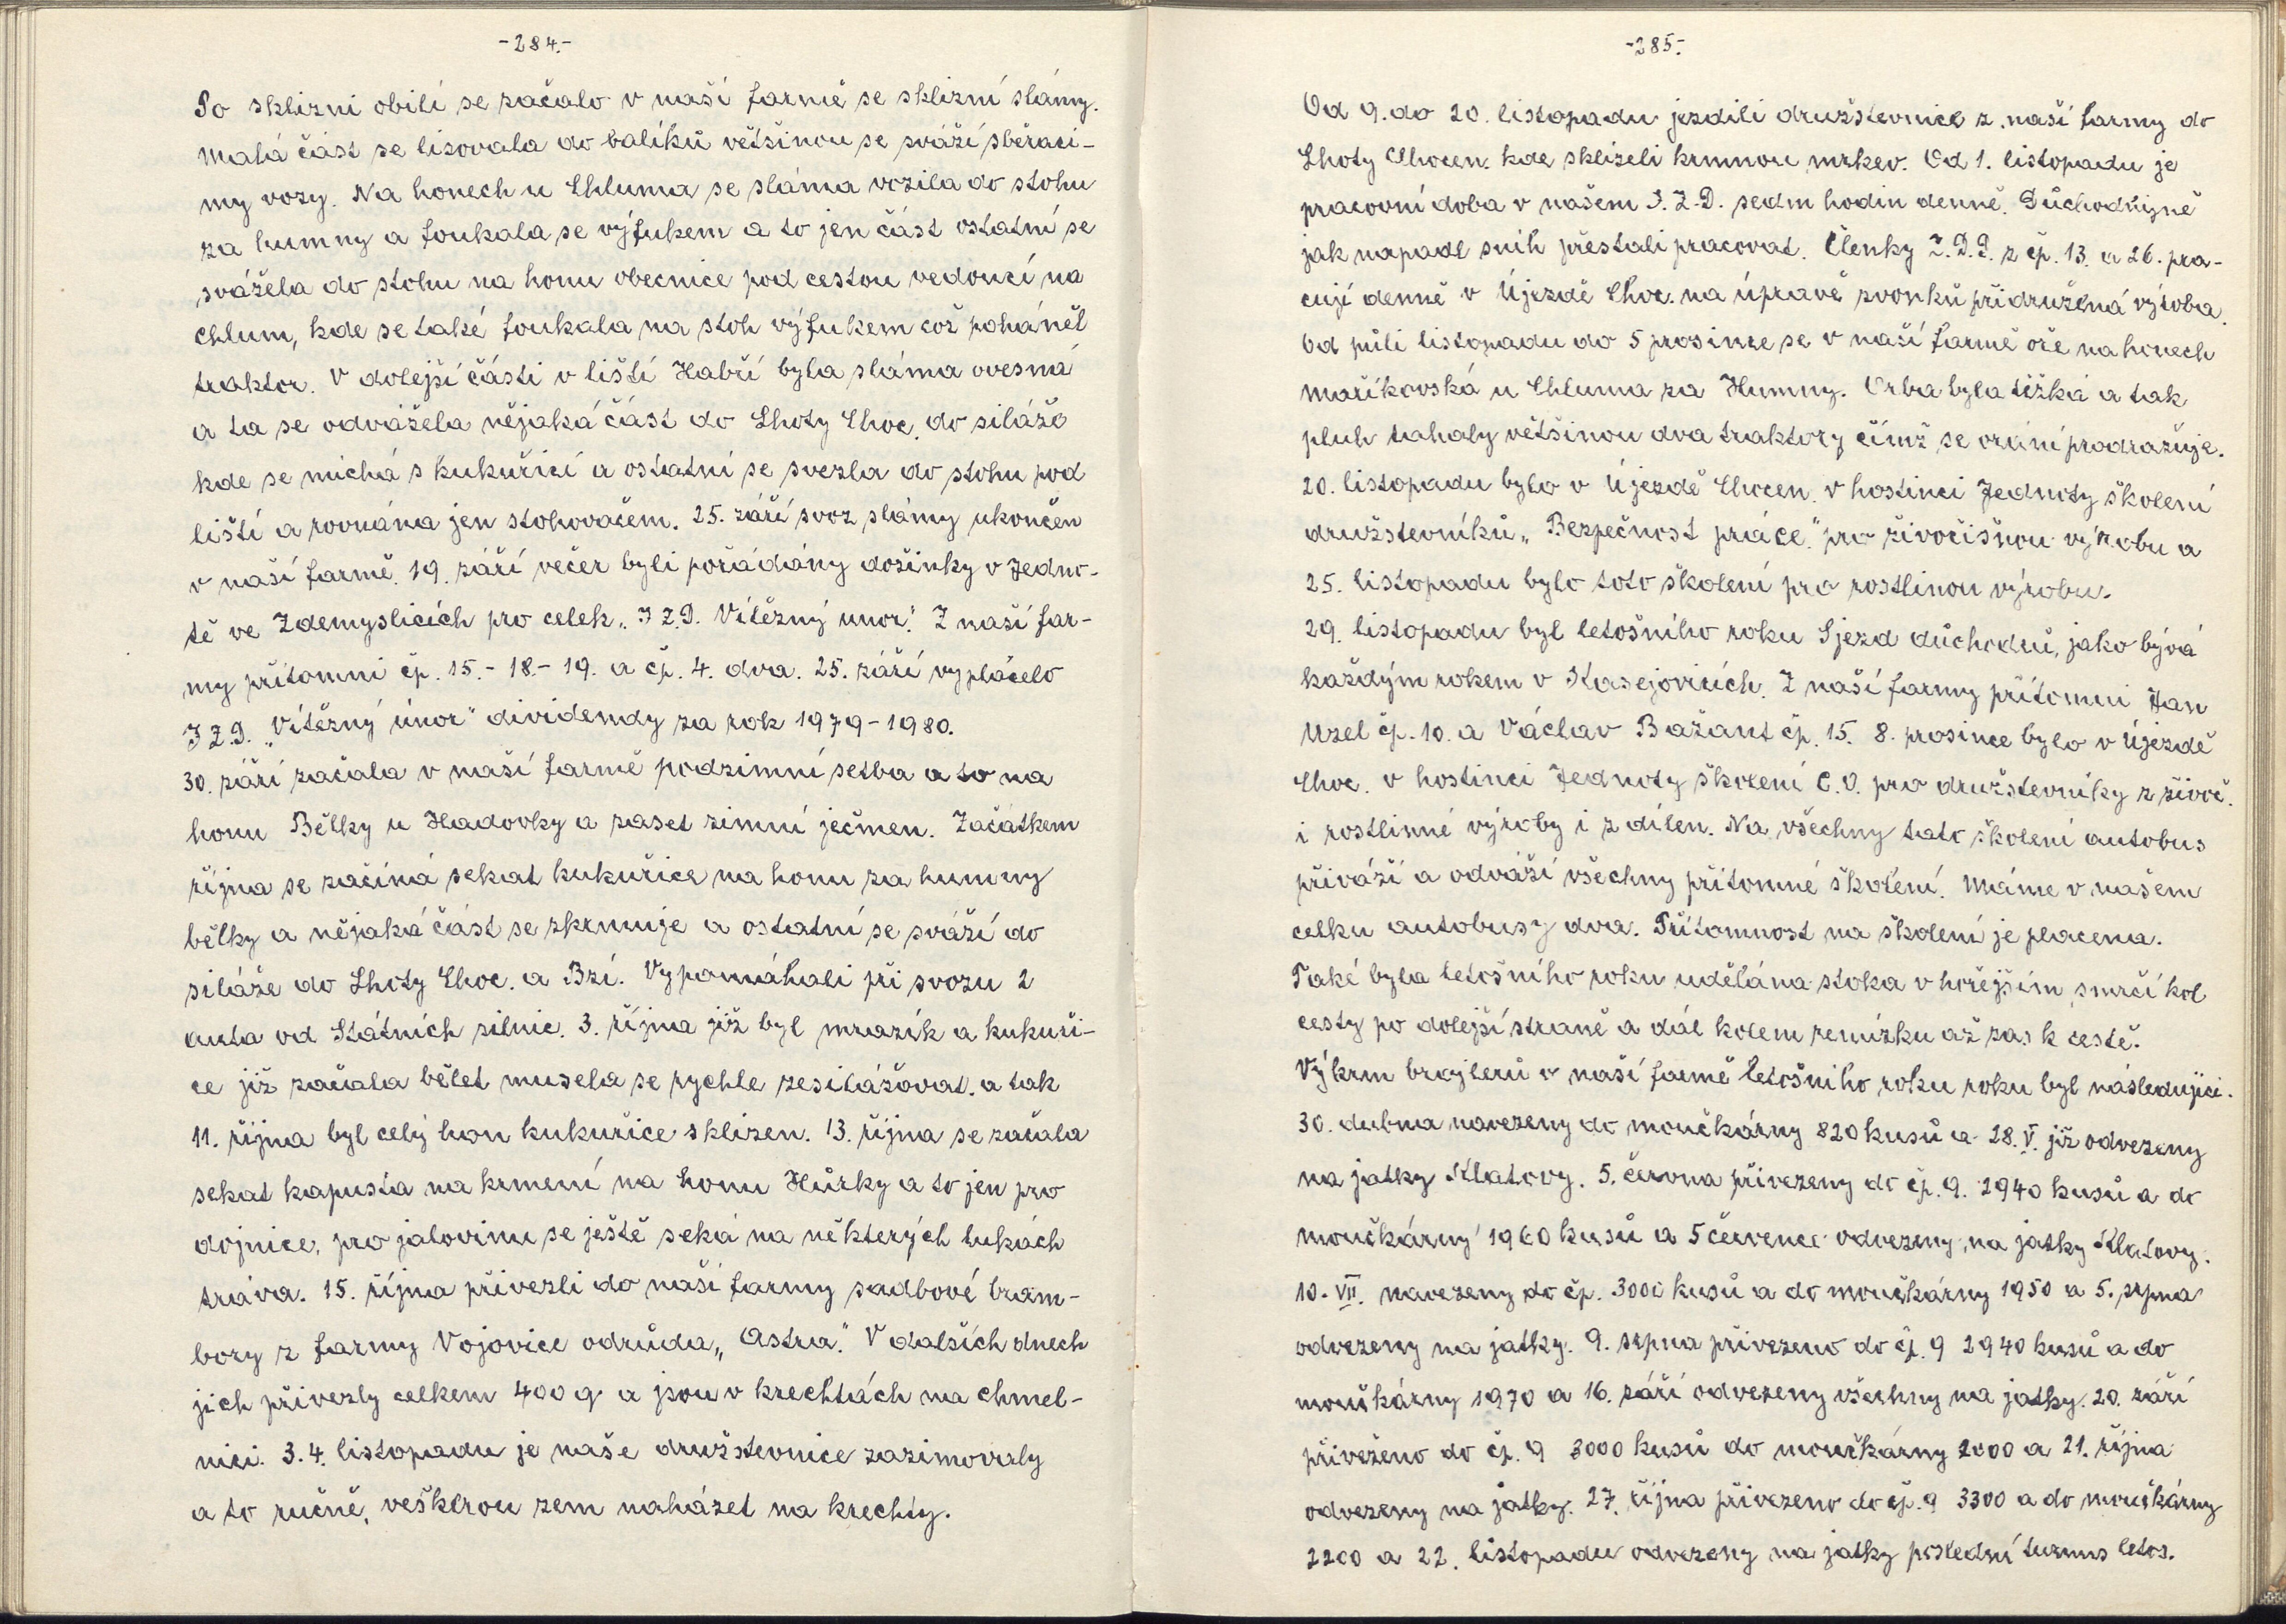 -284.-
Po sklizni obilí se začalo v naší farmě se sklizní slámy.
Malá část se lisovala do balíků většinou se sváží sběrací-
my vozy. Na honech u Chluma se sláma vozila do stohu
za humny a foukala se výfukem a to jen část ostatní se
svážela do stohu na honu obecnice pod cestou vedoucí na
Chlum, kde se také foukala na stoh výfukem což poháněl
traktor. V dolejší části v liští Habří byla sláma ovesná
a ta se odvážela nějaká část do Lhoty Choc. do siláže
kde se míchá s kukuřicí a ostatní se svezla do stohu pod
liští a rovnána jen stohovačem. 25. září svoz slámy ukončen
v naší farmě. 19. září večer byli pořádány dožinky v Jedno-
tě ve Zdemyslicích pro celek „J Z.D. Vítězný unor." Z naší far-
my přítomni čp. 15.- 18.- 19. a čp. 4. dva. 25. září vyplácelo
J Z.D. „Vítězný únor" dividendy za rok 1979-1980.
30. září začala v naší farmě podzimní setba a to na
honu Bělky u Hadovky a zaset zimní ječmen. Začátkem
října se začíná sekat kukuřice na honu za humny
bělky a nějaká část se zkrmuje a ostatní se sváží do
siláže do Lhoty Choc. a Bzí. Vypomáhali při svozu 2
auta od Státních silnic. 3. října již byl mrazík a kukuři-
ce již začala bělet musela se rychle zesilážovat. a tak
11. října byl celý hon kukuřice sklizen. 13. října se začala
sekat kapusta na krmení na honu Hůrky a to jen pro
dojnice, pro jalovinu se ještě seká na některých lukách
tráva. 15. října přivezli do naší farmy sadbové bram-
bory z farmy Vojovice odrůda „Astra." V dalších dnech
jich přivezly celkem 400 q a jsou v krechtách na chmel-
nici. 3.4. listopadu je naše družstevnice zazimovaly
a to ručně, veškerou zem naházet na krechty.
-285.-
Od 9. do 20. listopadu jezdili družstevnice z naší farmy do
Lhoty Chocen. kde sklizeli krmnou mrkev. Od 1. listopadu je
pracovní doba v našem J.Z.D. sedm hodin denně. Důchodkyně
jak napadl sníh přestali pracovat. Členky J.D.Z. z čp. 13. a 26. pra-
cují denně v Újezdě Choc. na úpravě zvonků přidružená výroba.
Od půli listopadu do 5 prosince se v naší farmě oře na honech
Maříkovská u Chluma za Humny. Orba byla těžká a tak
pluh tahaly většinou dva traktory čímž se orání prodražuje.
20. listopadu bylo v Újezdě Chocen. v hostinci Jednoty školení
družstevníků „Bezpečnost práce." pro živočišnou výrobu a
25. listopadu bylo toto školení pro rostlinou výrobu.
29. listopadu byl letošního roku Sjezd důchodců, jako bývá
každým rokem v Kasejovicích. Z naší farmy přítomni Jan
Uzel čp. 10. a Václav Bažant čp. 15. 8. prosince bylo v Újezdě
Choc. v hostinci Jednoty školení C.O. pro družstevníky z živoč.
i rostlinné výroby i z dílen. Na všechny tato školení autobus
přiváží a odváží všechny přítomné školení. Máme v našem
celku autobusy dva. Přítomnost na školení je placena.
Také byla letošního roku udělána stoka v hořejším smrčí kol
cesty po dolejší straně a dál kolem remízku až zas k cestě.
Výkrm brojlerů v naší farmě letošního roku roku byl následující.
30. dubna navezeny do moučkárny 820 kusů a 28. V. již odvezeny
na jatky Klatovy. 5. června přivezeny do čp. 9. 2940 kusů a do
moučkárny 1960 kusů a 5 července odvezeny na jatky Klatovy.
10. VII. navezeny do čp. 3000 kusů a do moučkárny 1950 a 5. srpna
odvezeny na jatky. 9. srpna přivezeno do čp. 9 2940 kusů a do
moučkárny 1970 a 16. září odvezeny všechny na jatky. 20. září
přiveženo do čp. 9 3000 kusů do moučkárny 2000 a 21. října
odvezeny na jatky. 27. října přivezeno do čp. 9 3300 a do moučkárny
2200 a 22. listopadu odvezeny na jatky poslední turnus letos.